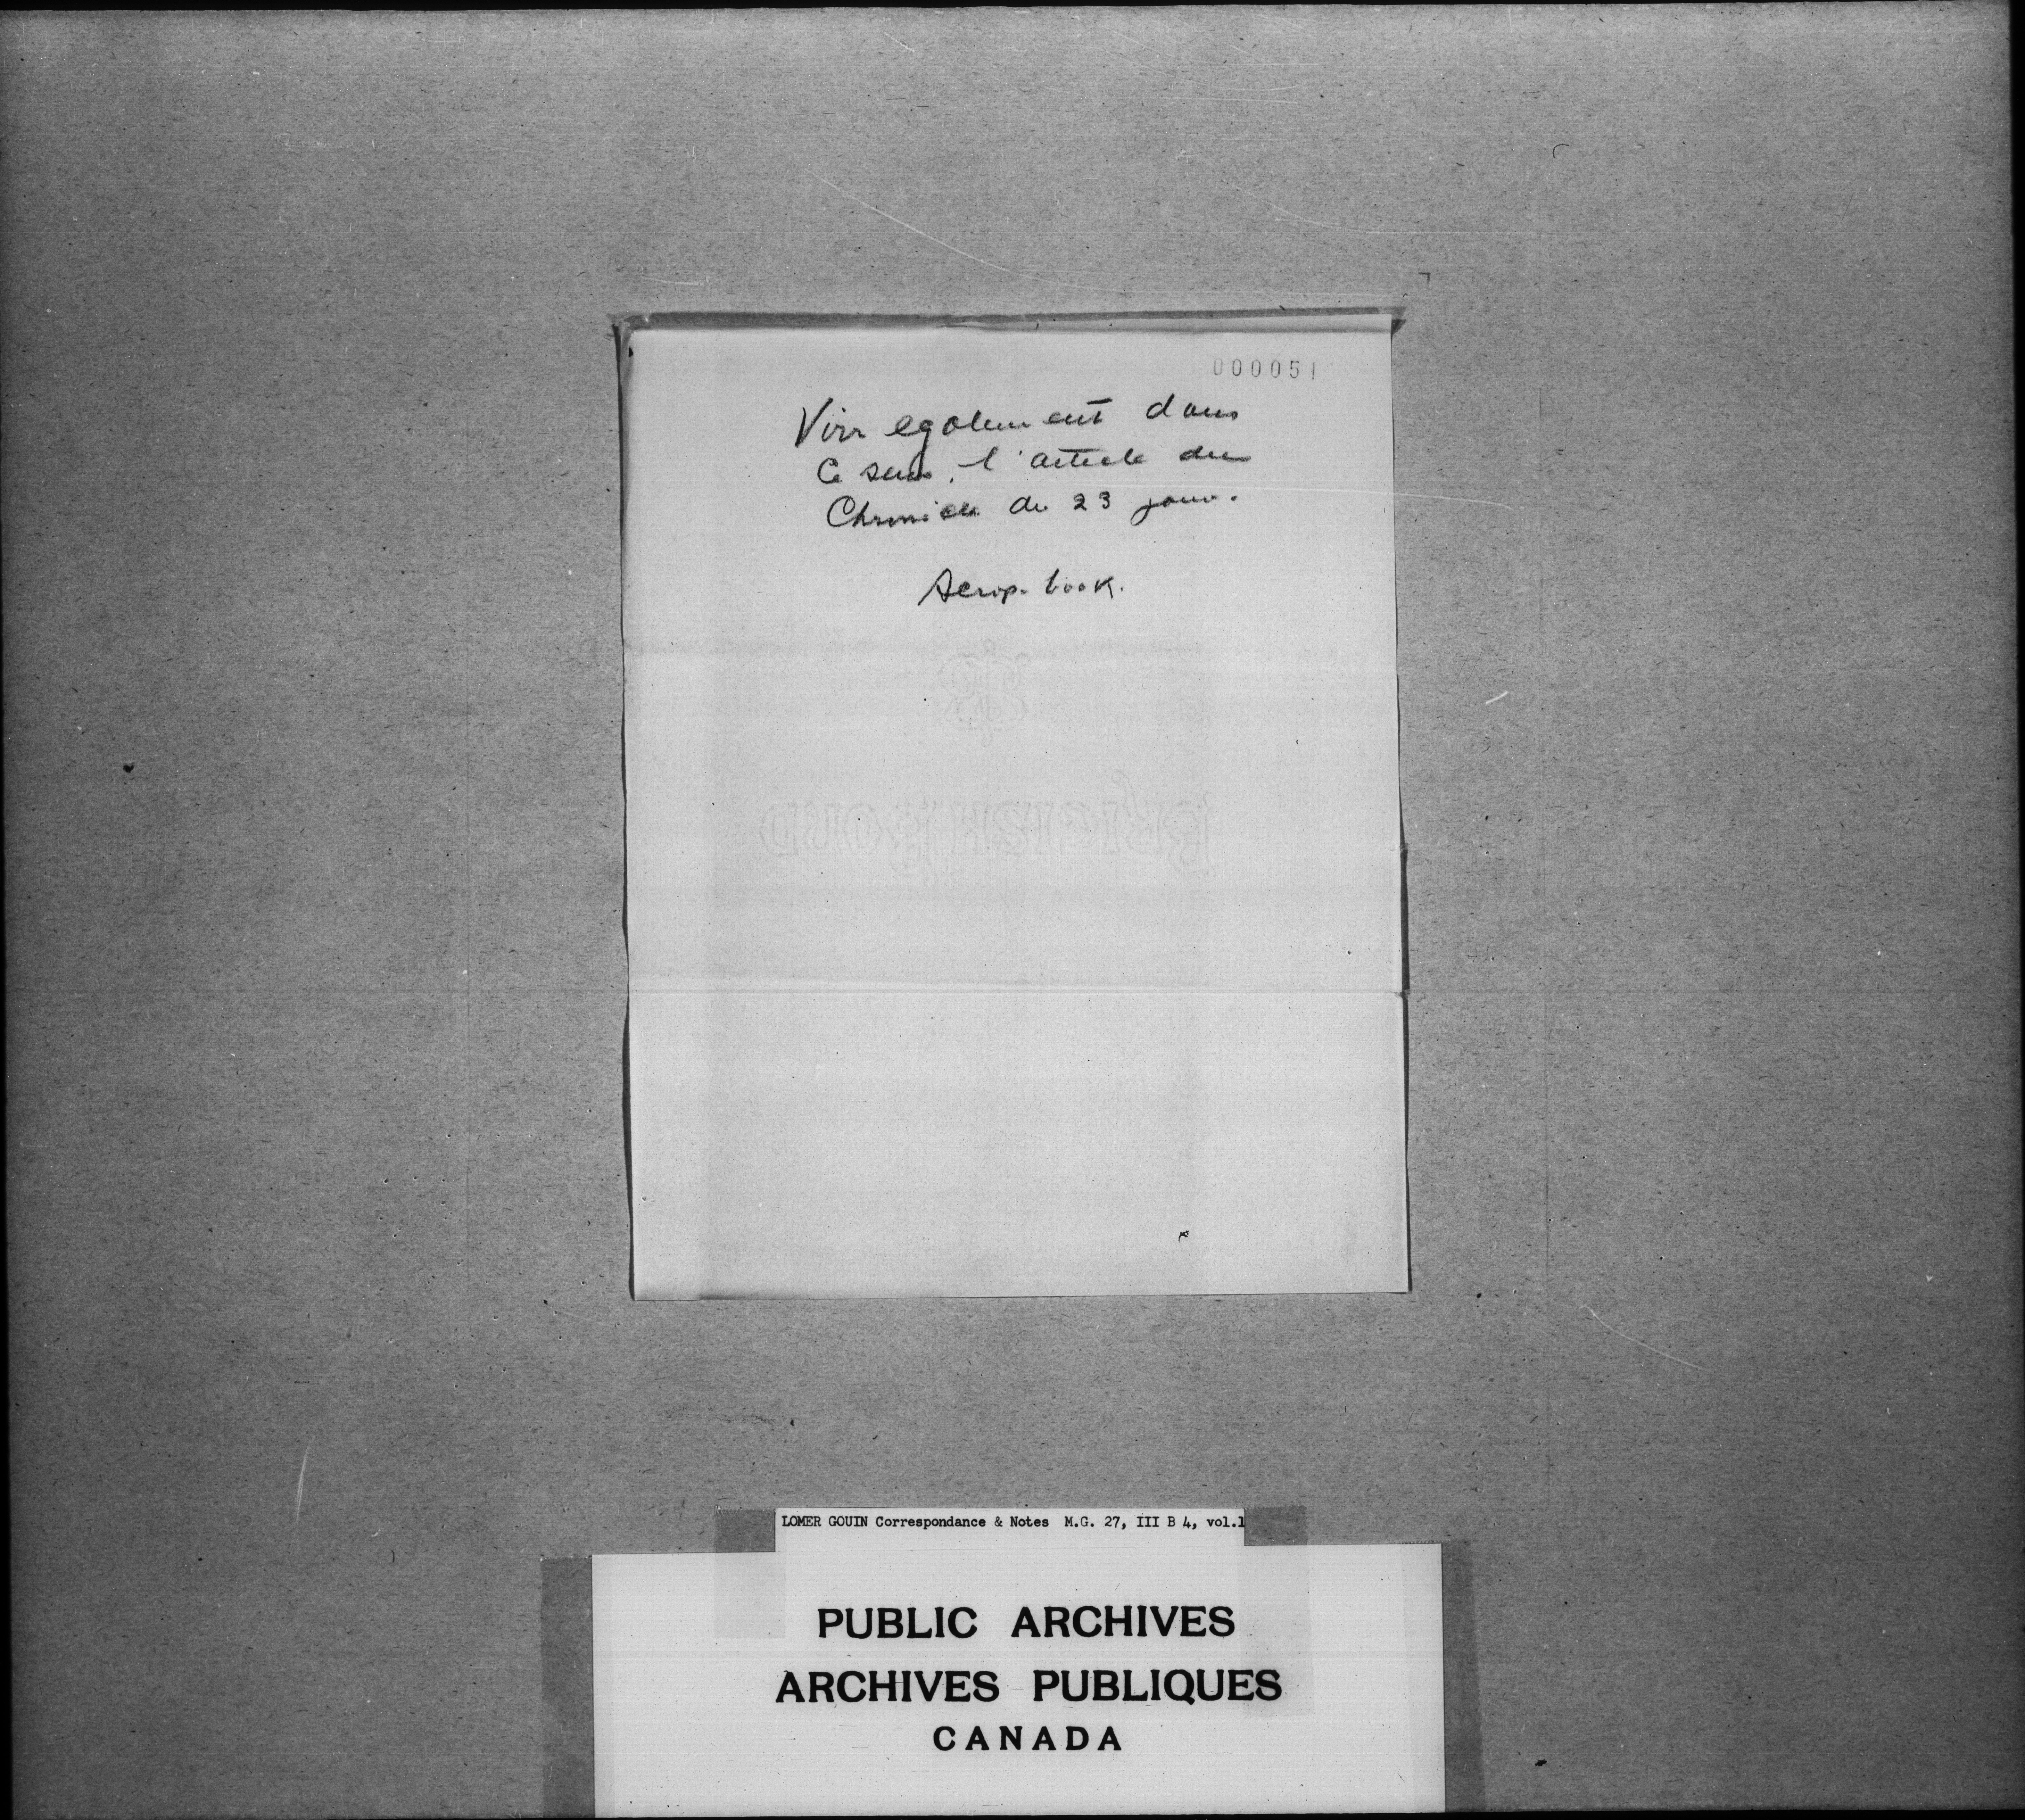 000051
Voir egalement dans
ce sens, l'article du
Chronicle du 23 janv.
Scrap-book.
BRITISH BOND
LOMER GOUIN Correspondance & Notes M.G. 27, III B 4, vol.1
PUBLIC ARCHIVES
ARCHIVES PUBLIQUES
CANADA